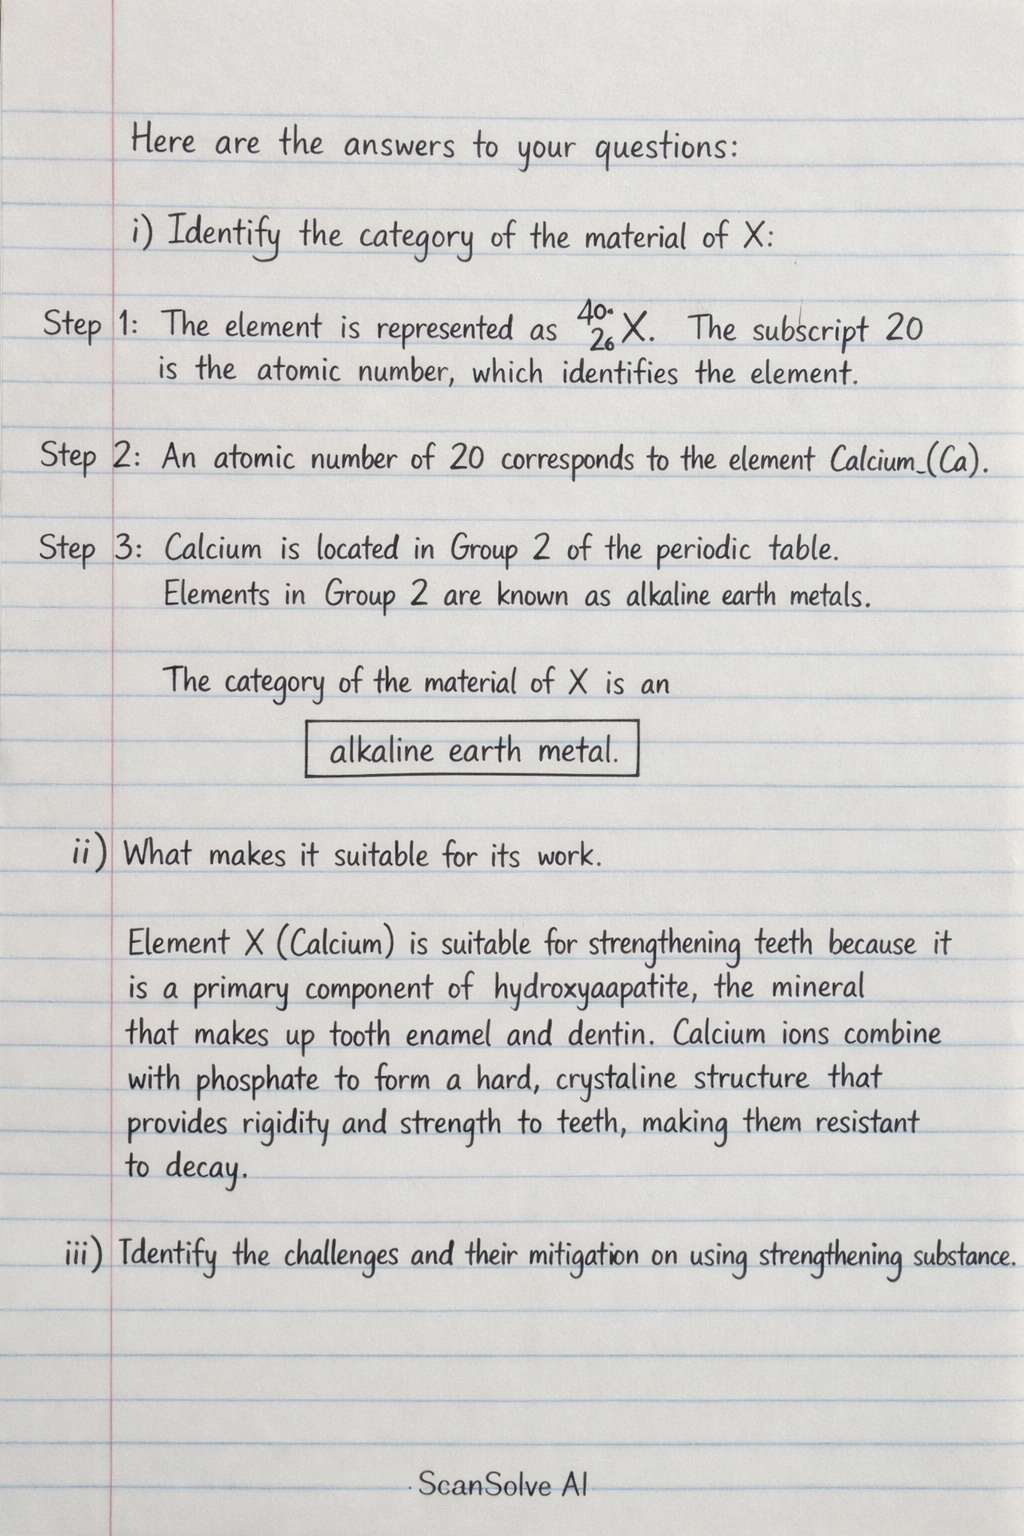 Here are the answers to your questions:
i) Identify the category of the material of X:
Step 1: The element is represented as ⁴⁰₂₆X. The subscript 20
is the atomic number, which identifies the element.
Step 2: An atomic number of 20 corresponds to the element Calcium (Ca).
Step 3: Calcium is located in Group 2 of the periodic table.
Elements in Group 2 are known as alkaline earth metals.
The category of the material of X is an
alkaline earth metal.
ii) What makes it suitable for its work.
Element X (Calcium) is suitable for strengthening teeth because it
is a primary component of hydroxyaapatite, the mineral
that makes up tooth enamel and dentin. Calcium ions combine
with phosphate to form a hard, crystaline structure that
provides rigidity and strength to teeth, making them resistant
to decay.
iii) Identify the challenges and their mitigation on using strengthening substance.
ScanSolve AI